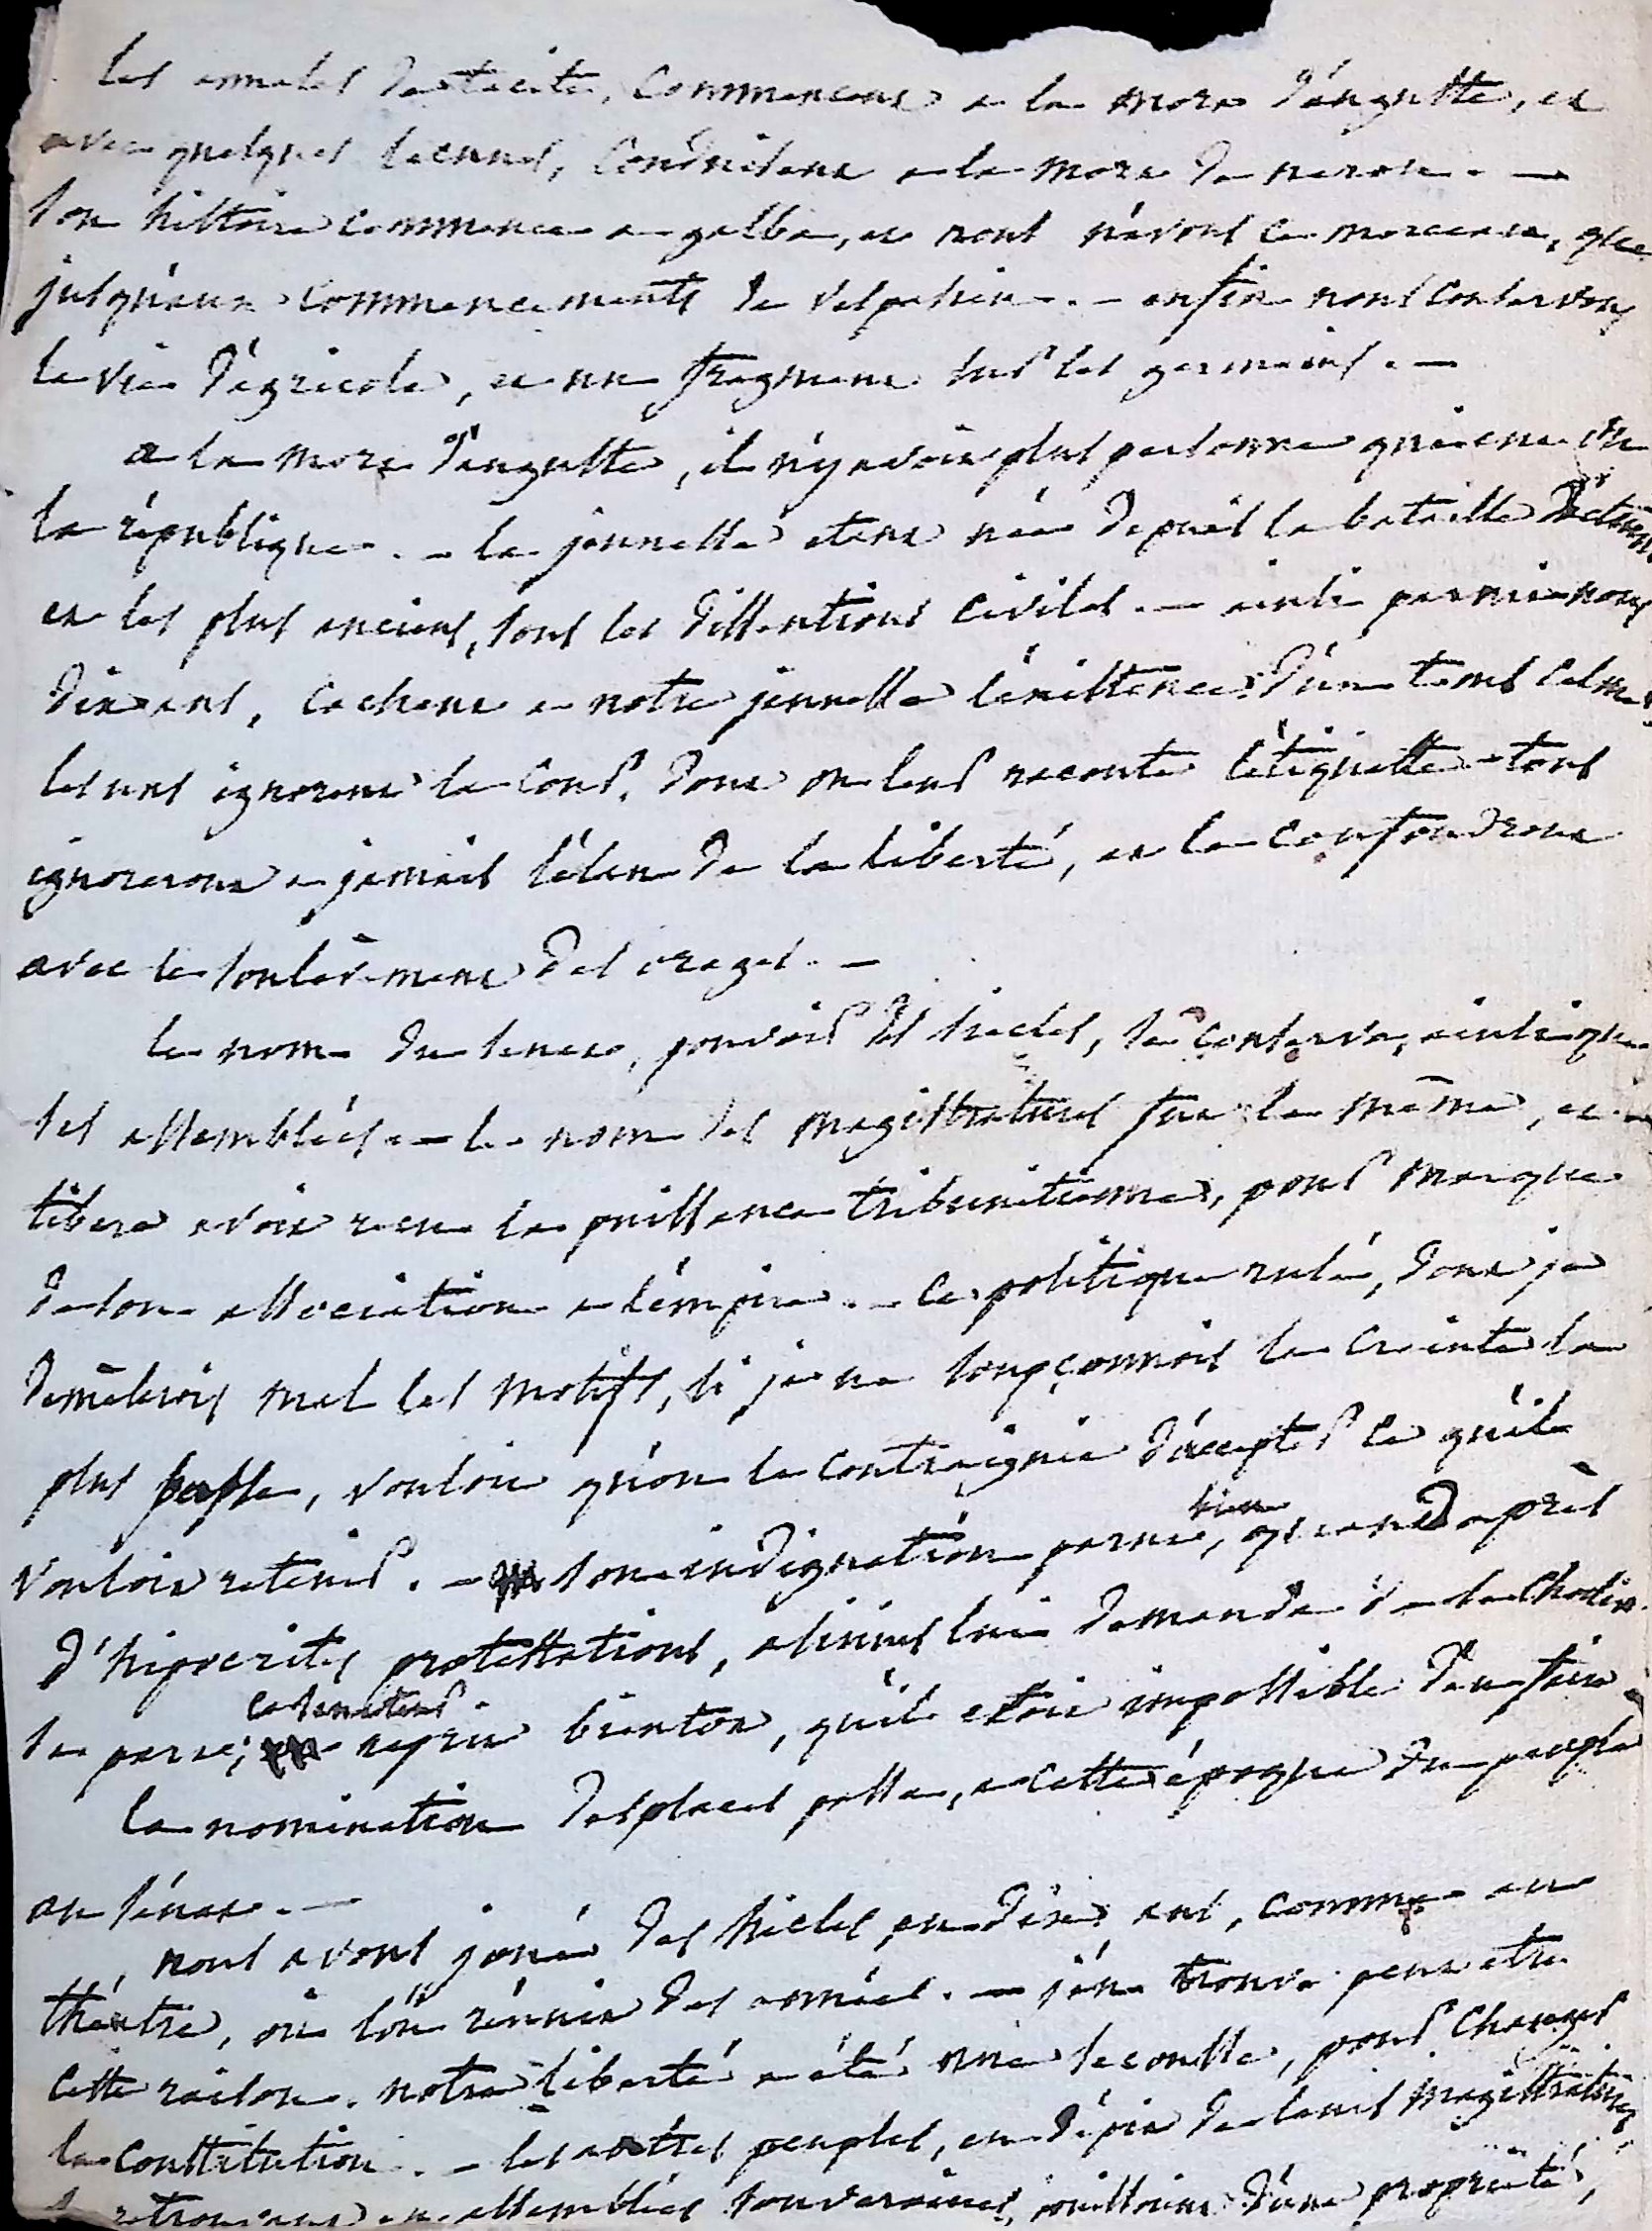 les annales de tacite, commencent a la mort d'auguste, et
avec quelques lacunes, conduisent a la mort de neron. —
son histoire commence a galba, et nous n'avons ce morceau, que
jusqu'aux commencements de vespasien. — enfin nous conservons
la vie d'agricola, et un fragment sur les germains. —
a la mort d'auguste, il n'y avoit plus personne qui eut vu
la république. — la jeunesse etant née depuis la bataille d'actium
et les plus anciens, sous les dissentions civiles. — ainsi parmi nous
dix ans, cachent a notre jeunesse l'existence d'un tems calme.
les uns ignorent la cour, dont on leur raconte l'étiquette tous
ignoreront a jamais l'élan de la liberté, et la confondront
avec le soulèvement des orages. —
le nom du senat, pouvoir des siecles, se conserva, ainsi que
ses assemblées. — le nom des magistratures fut le même, et
tibere avoit reçu la puissance tribunitienne, pour marque
de son association a l'empire. — ce politique rusé, dont je
démêlerois mal les motifs, si je ne soupçonnois la crainte la
plus basse, vouloit qu'on le contraignit d'accepter ce qu'il
vouloit retenir. — son indignation parut bien, quand après
d'hipocrites protestations, asinius lui demanda de se choisir
sa part; ce senateur reprit bientot, qu'il etoit impossible d'en faire
la nomination des places passa, a cette époque du peuple
au sénat. —
nous avons joué des siecles en dix ans, comme au
théatre, où l'on réunit des années. — j'en trouve peut etre
cette raison. notre liberté a été une secousse, pour changer
la constitution. — les autres peuples, en dépit de leurs magistratures,
se retrouvant en assemblées souveraines, jouissoient d'une propriété,